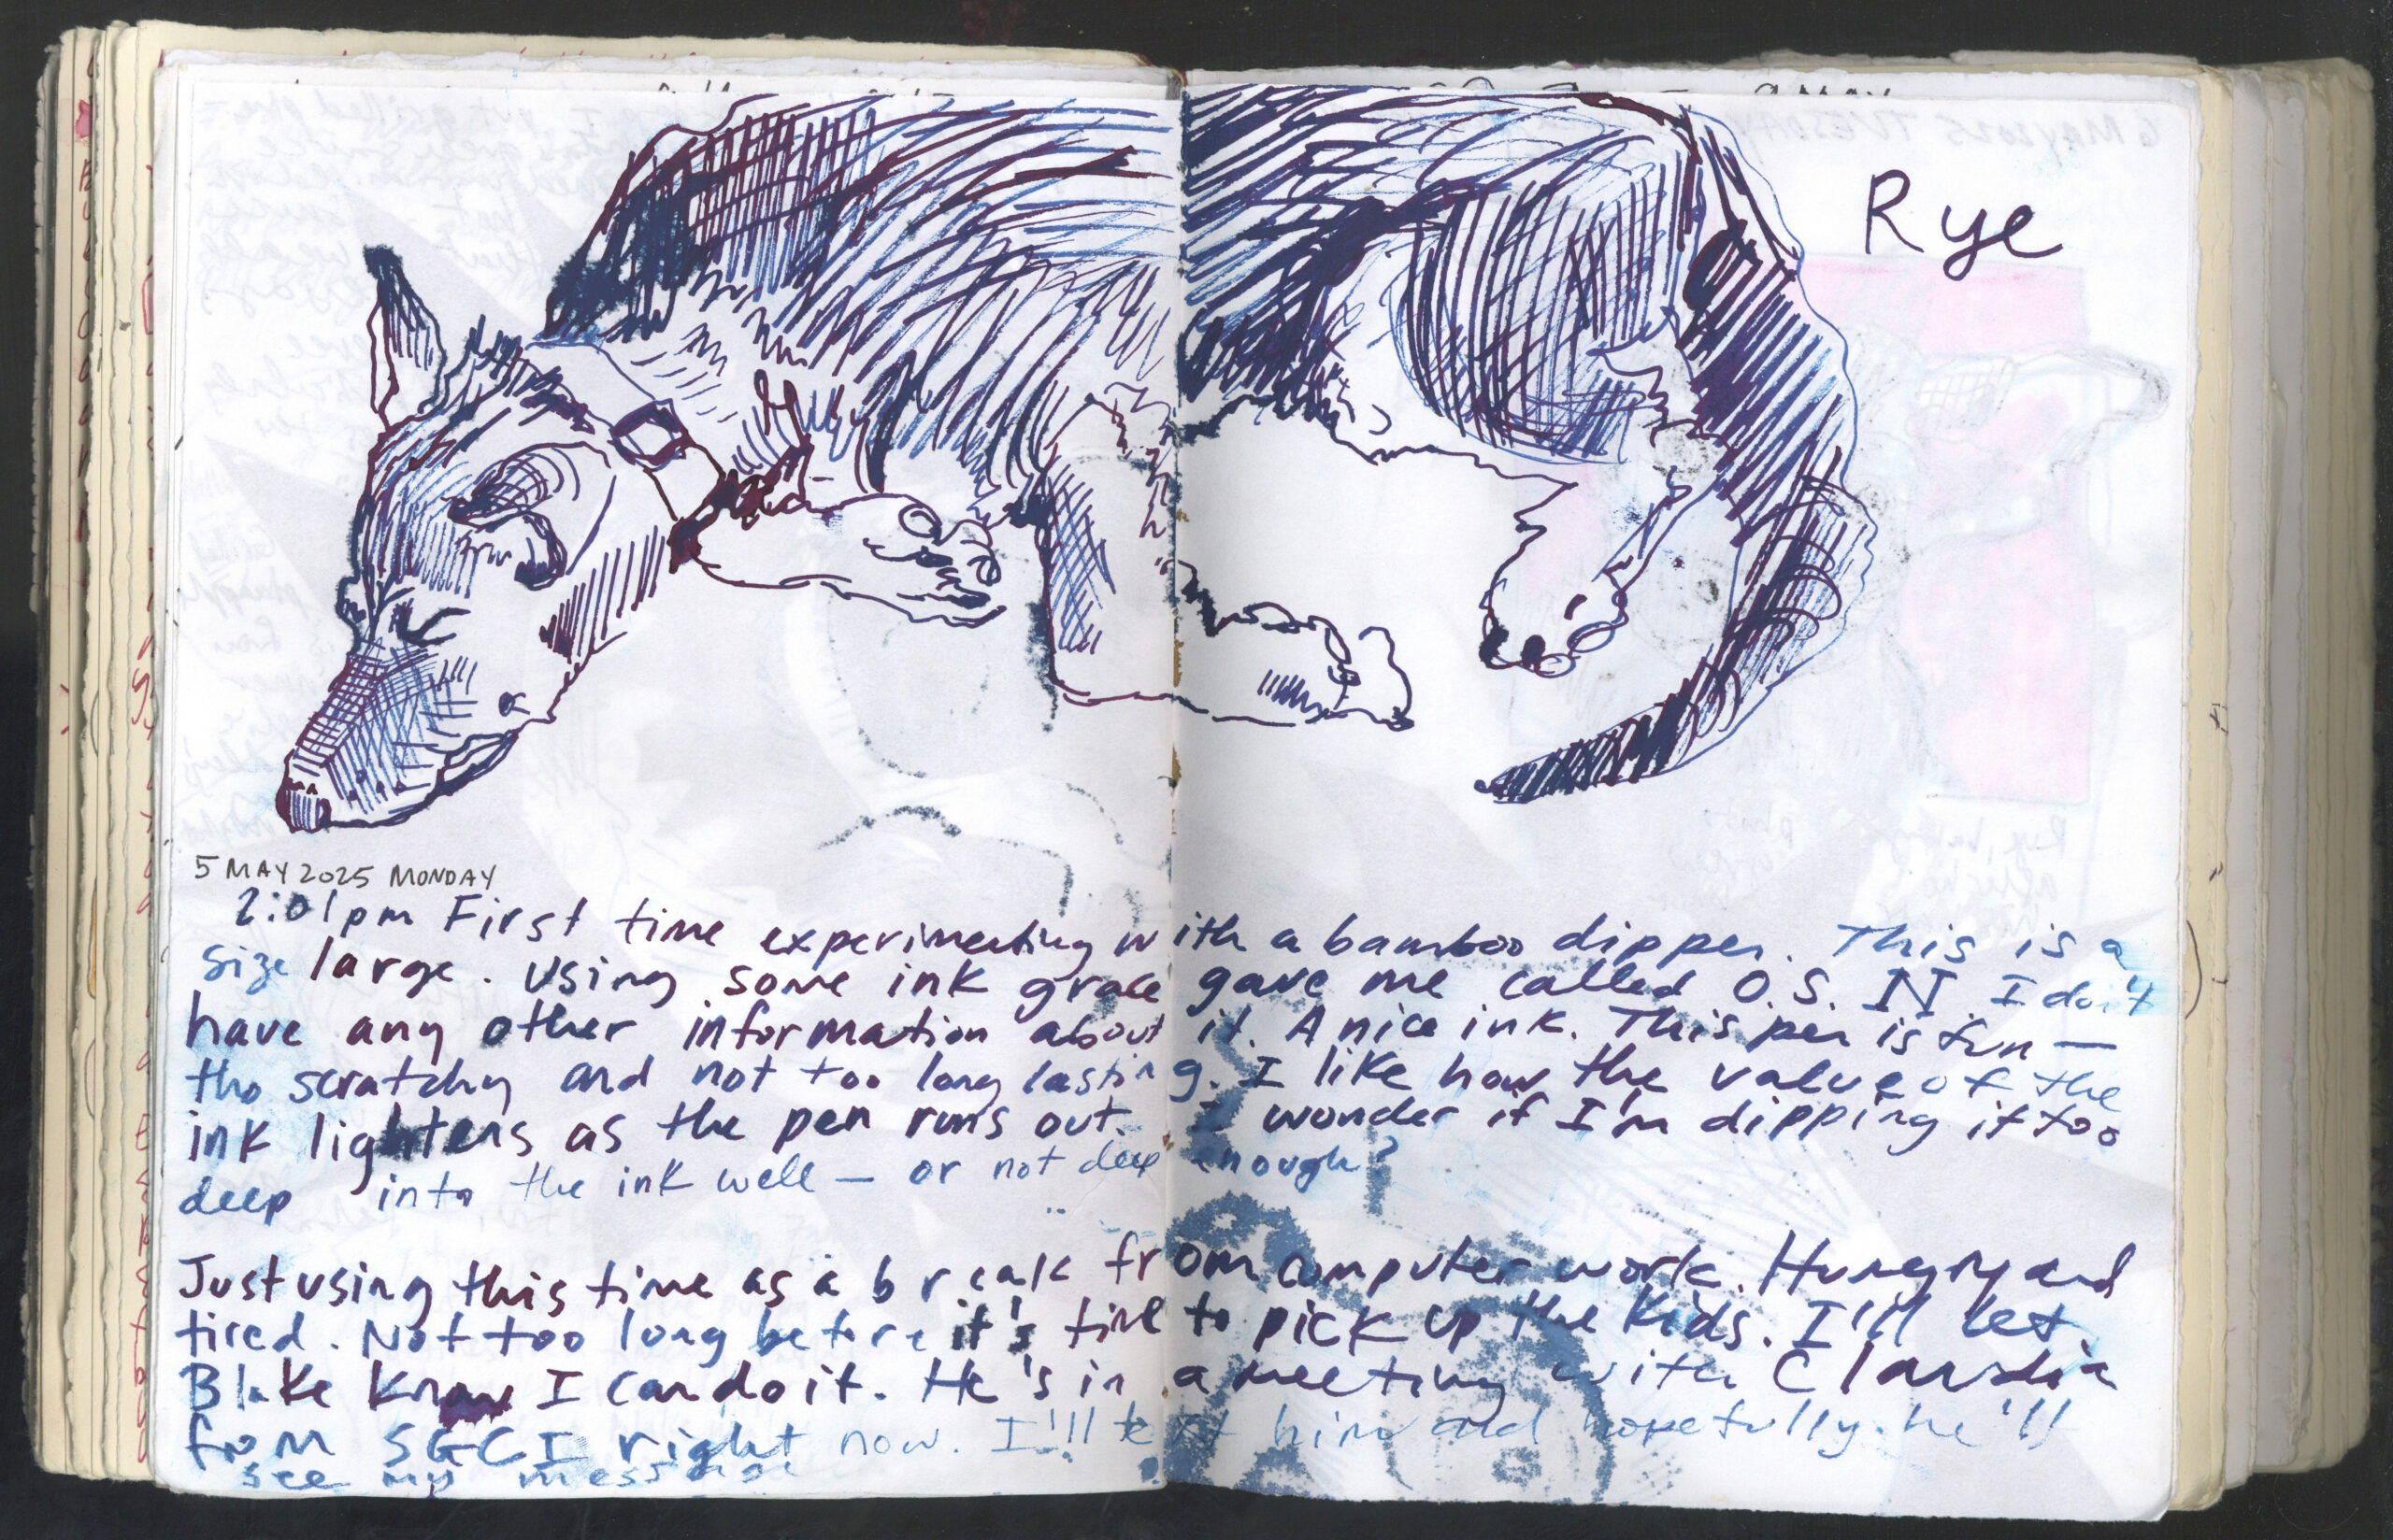 Rye
5 MAY 2025 MONDAY
2:01pm First time experimenting with a bamboo dipper. This is a
size large. Using some ink grace gave me called O.S. N I don't
have any other information about it. A nice ink. This pen is fun —
tho scratchy and not too long lasting. I like how the value of the
ink lightens as the pen runs out. I wonder if I'm dipping it too
deep into the ink well — or not deep enough?
Just using this time as a break from computer work. Hungry and
tired. Not too long before it's time to pick up the kids. I'll let
Blake know I can do it. He's in a meeting with Claudia
from SGCI right now. I'll text him and hopefully he'll
see my message